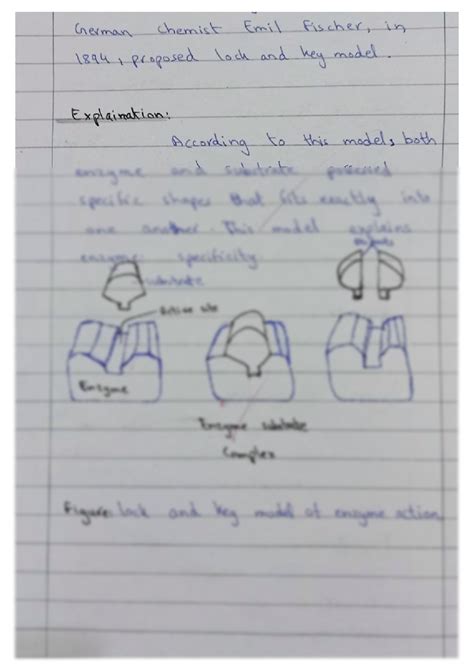 German chemist Emil Fischer, in
1894, proposed lock and key model.
Explaination:
According to this model, both
enzyme and substrate possessed
specific shapes that fits exactly into
one another. This model explains
enzyme specificity.
substrate
Active site
Enzyme
Enzyme substrate
Complex
Figure: lock and key model of enzyme action